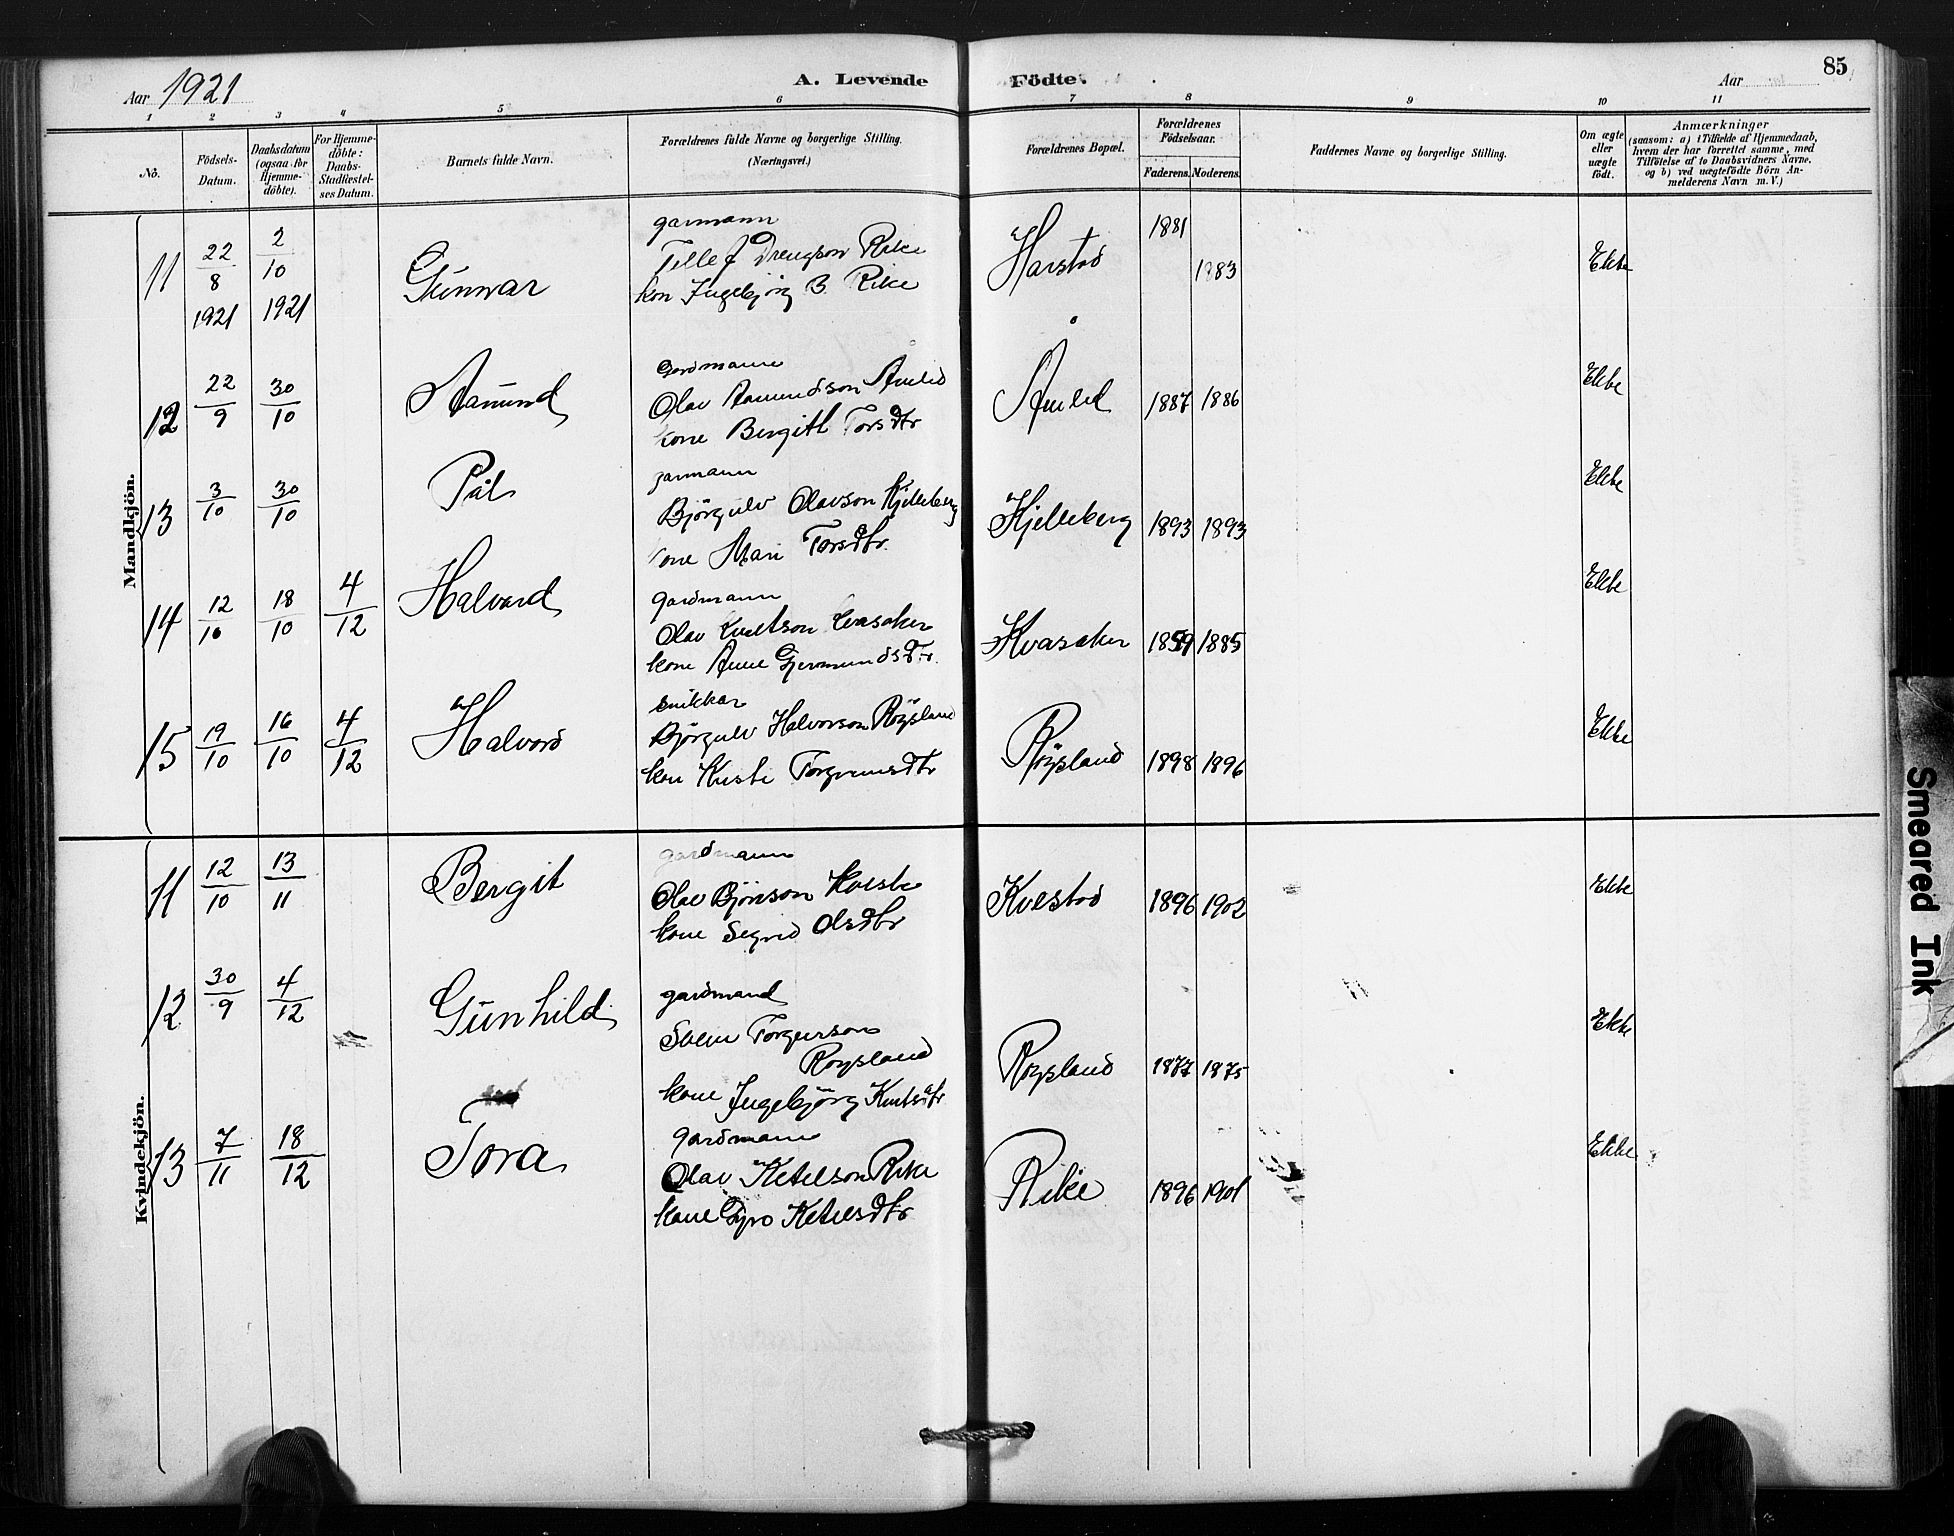 Aar 1921
A. Levende
Födte.
Aar
85
1 2 3 4 5 6 7 8 9 10 11
No.
Födsels-
Datum.
Daabsdatum
(ogsaa for
Hjemme-
döbte).
For Hjemme-
döbte:
Daabs-
Stadfæstel-
ses Datum.
Barnets fulde Navn.
Forældrenes fulde Navne og borgerlige Stilling.
(Næringsvei.)
Forældrenes Bopæl.
Forældrenes
Födselsaar.
Faderens. Moderens.
Faddernes Navne og borgerlige Stilling.
Om ægte
eller
uægte
födt.
Anmærkninger
(saasom: a) i Tilfælde af Hjemmedaab,
hvem der har forrettet samme, med
Tilföielse af to Daabsvidners Navne,
og b) ved uægtefödte Börn An-
melderens Navn m. V.)
Mandkjön.
11 22/8 1921 2/10 1921 Gunnar
garmann
Tellef Drengson Rike
kon Ingebjörg B. Rike
Harstad 1881 1883 Ekte
12 22/9 30/10 Aamund
Gardmann
Olav Aamundson Åmlid
kone Bergitt Torsdtr
Åmlid 1887 1886 Ekte
13 3/10 30/10 Pål
garmann
Bjørgulv Olavson Kjelleberg
kone Mari Torsdtr.
Kjelleberg 1893 1893 Ekte
14 12/10 18/10 4/12 Halvard
gardmann
Olav Knutson Kvasaker
kone Anne Gjermundsdtr.
Kvasaker 1859 1885 Ekte
15 19/10 16/10 4/12 Halvord
snikkar
Bjørgulv Halvorson Röysland
kon Torgrimsdtr
Röysland 1898 1896 Ekte
Kvindekjön.
11 12/10 13/11 Bergit
gardmann
Olav Björnson
kone Sigrid Olsdtr
Kvestad 1896 1902 Ekte
12 30/9 4/12 Gunhild
gardmand
Svein Torgerson
Roysland
kone Ingebjörg Knutsdtr
Roysland 1877 1875 Ekte
13 7/11 18/12 Tora
Gardmann
Olav Ketelson Rike
kone Gyro Ketelsdtr
Rike 1896 1901 Ekte
Smeared Ink